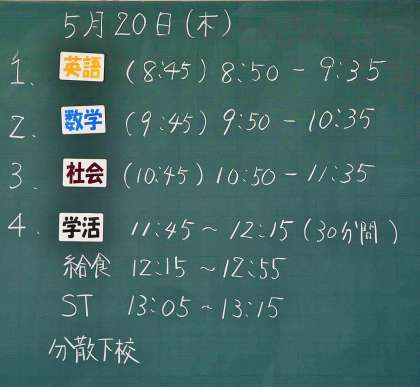 5月20日(木)
1. 英語 (8:45) 8:50 - 9:35
2. 数学 (9:45) 9:50 - 10:35
3. 社会 (10:45) 10:50 - 11:35
4. 学活 11:45 ~ 12:15 (30分間)
給食 12:15 ~ 12:55
ST 13:05 ~ 13:15
分散下校